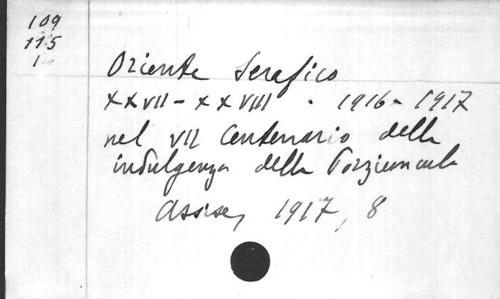 109
115
1
Oriente Serafico
XXVII - XXVIII . 1916 - 1917
nel VII Centenario della
indulgenza della Porziuncola
Assisi, 1917, 8